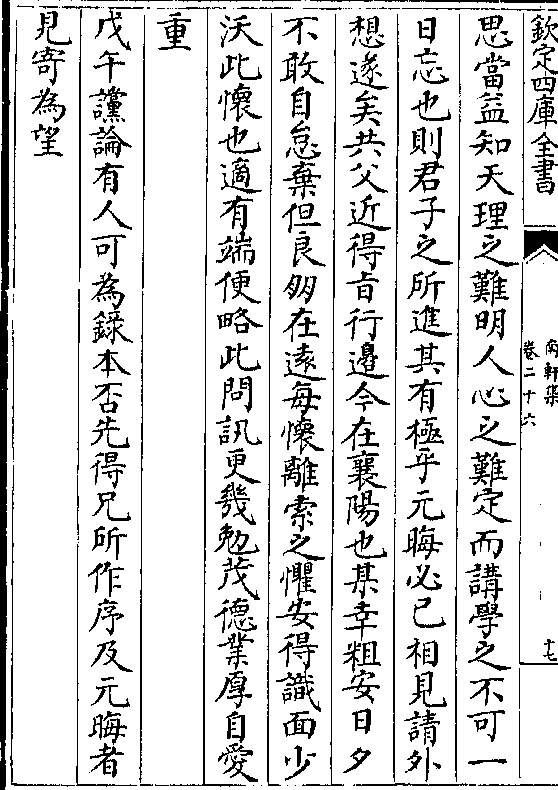 欽定四庫全書
南軒集
卷二十六
十七
思當益知天理之難明人心之難定而講學之不可一
日忘也則君子之所進其有極乎元晦必已相見請外
想遂矣共父近得㫖行邊今在襄陽也某幸粗安日夕
不敢自怠棄但良朋在逺每懷離索之懼安得識面少
沃此懷也適有端便略此問訊更幾勉茂德業厚自愛
重
戊午讜論有人可為録本否先得兄所作序及元晦者
見寄為望